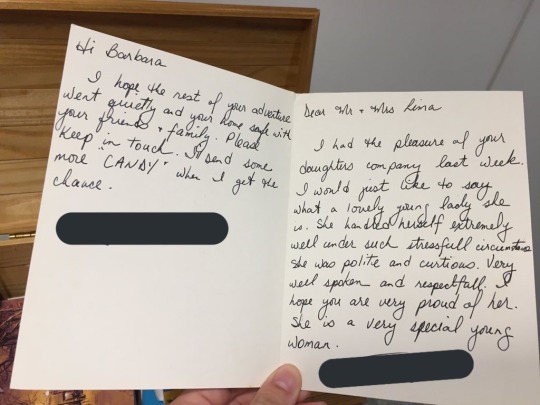 Hi Barbara
I hope the rest of your adventure
went quietly and your home safe with
your friends & family. Please
keep in touch. I'll send some
more CANDY when I get the
chance.
Dear Mr & Mrs Rima
I had the pleasure of your
daughters company last week.
I would just like to say
what a lovely young lady she
is. She handled herself extremely
well under such stressfull circumstances
She was polite and curtious. Very
well spoken and respectfull. I
hope you are very proud of her.
She is a very special young
woman.